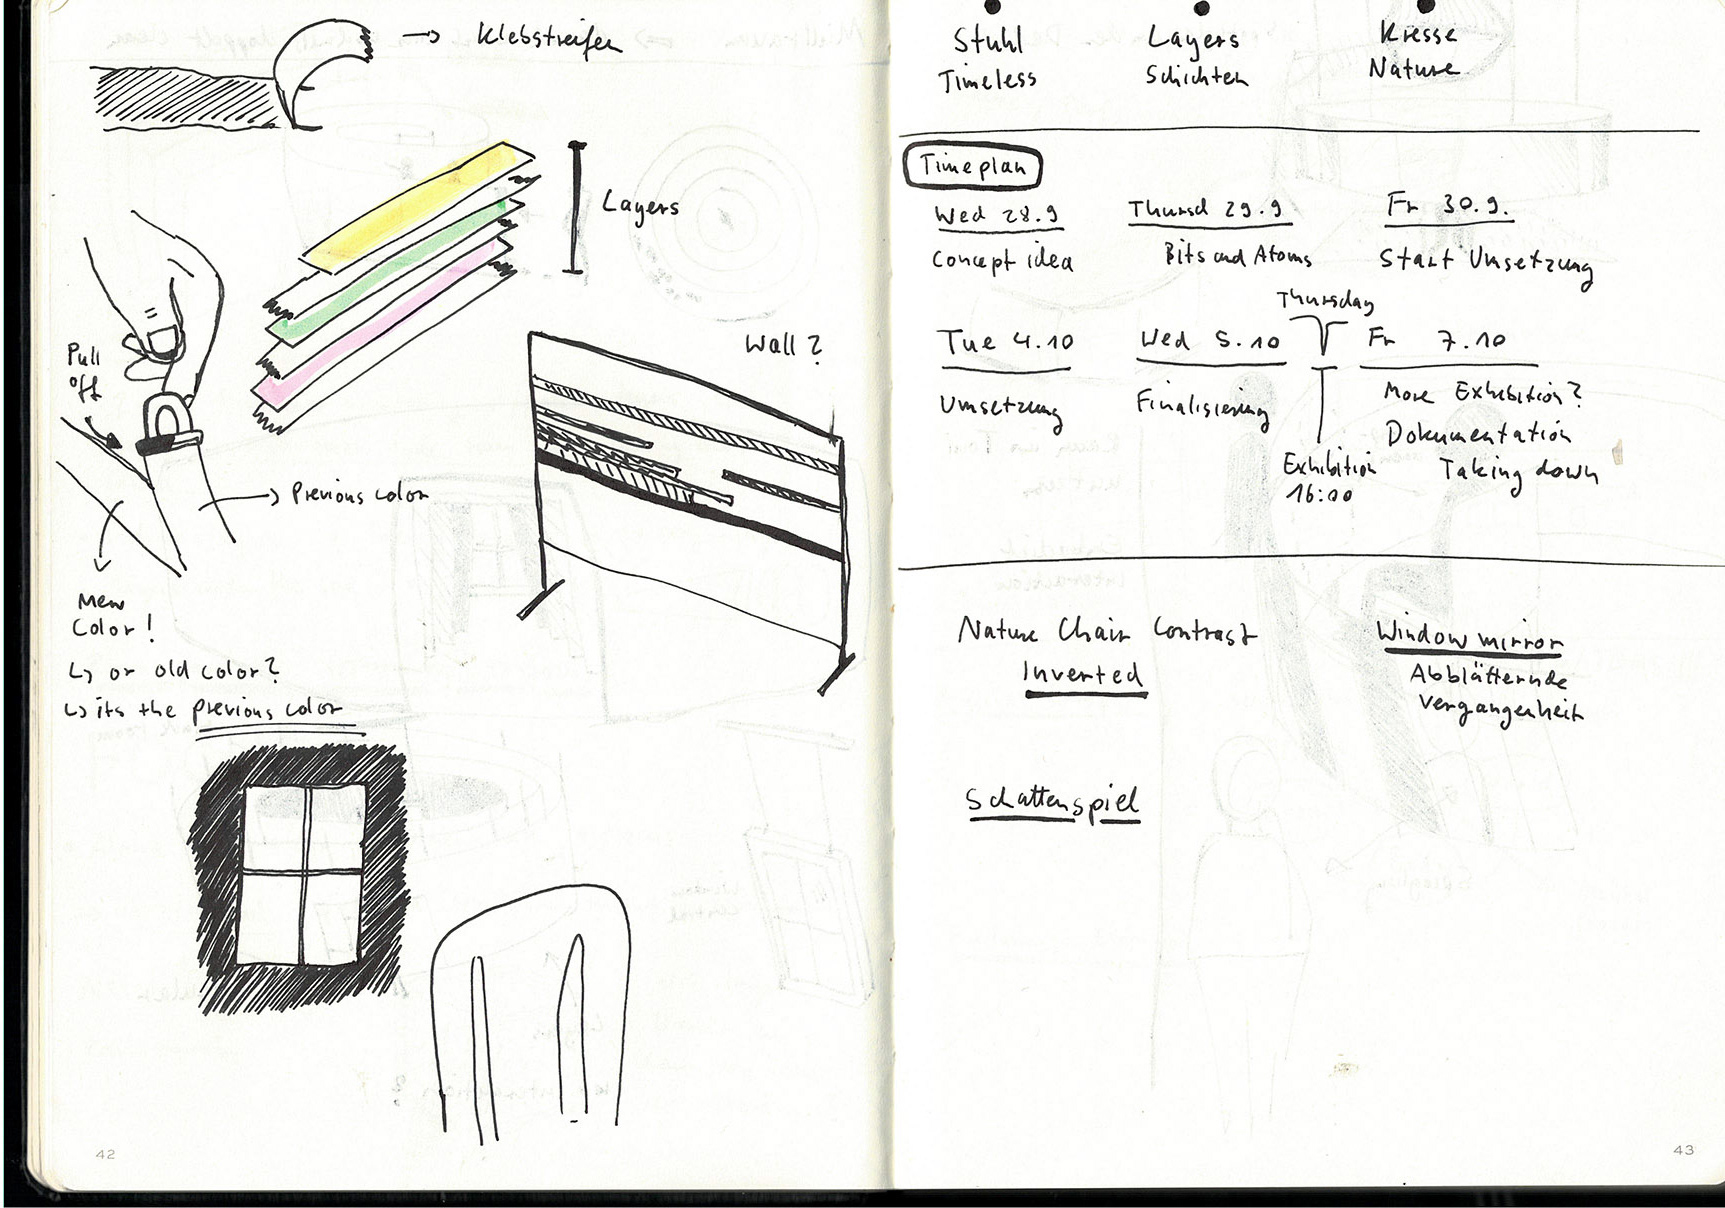 → Klebstreifen
Layers
Pull
off
Wall?
→ Previous color
New
Color!
↳ or old color?
↳ its the previous color
42
Stuhl
Timeless
Layers
Schichten
Kresse
Nature
Timeplan
Wed 28.9
Concept idea
Thursd 29.9
Bits and Atoms
Fr 30.9.
Start Umsetzung
Tue 4.10
Umsetzung
Wed 5.10
Finalisierung
Thursday
Exhibition
16:00
Fr 7.10
More Exhibition?
Dokumentation
Taking down
Nature Chair Contrast
Inverted
Window mirror
Abblätternde
Vergangenheit
Schattenspiel
43